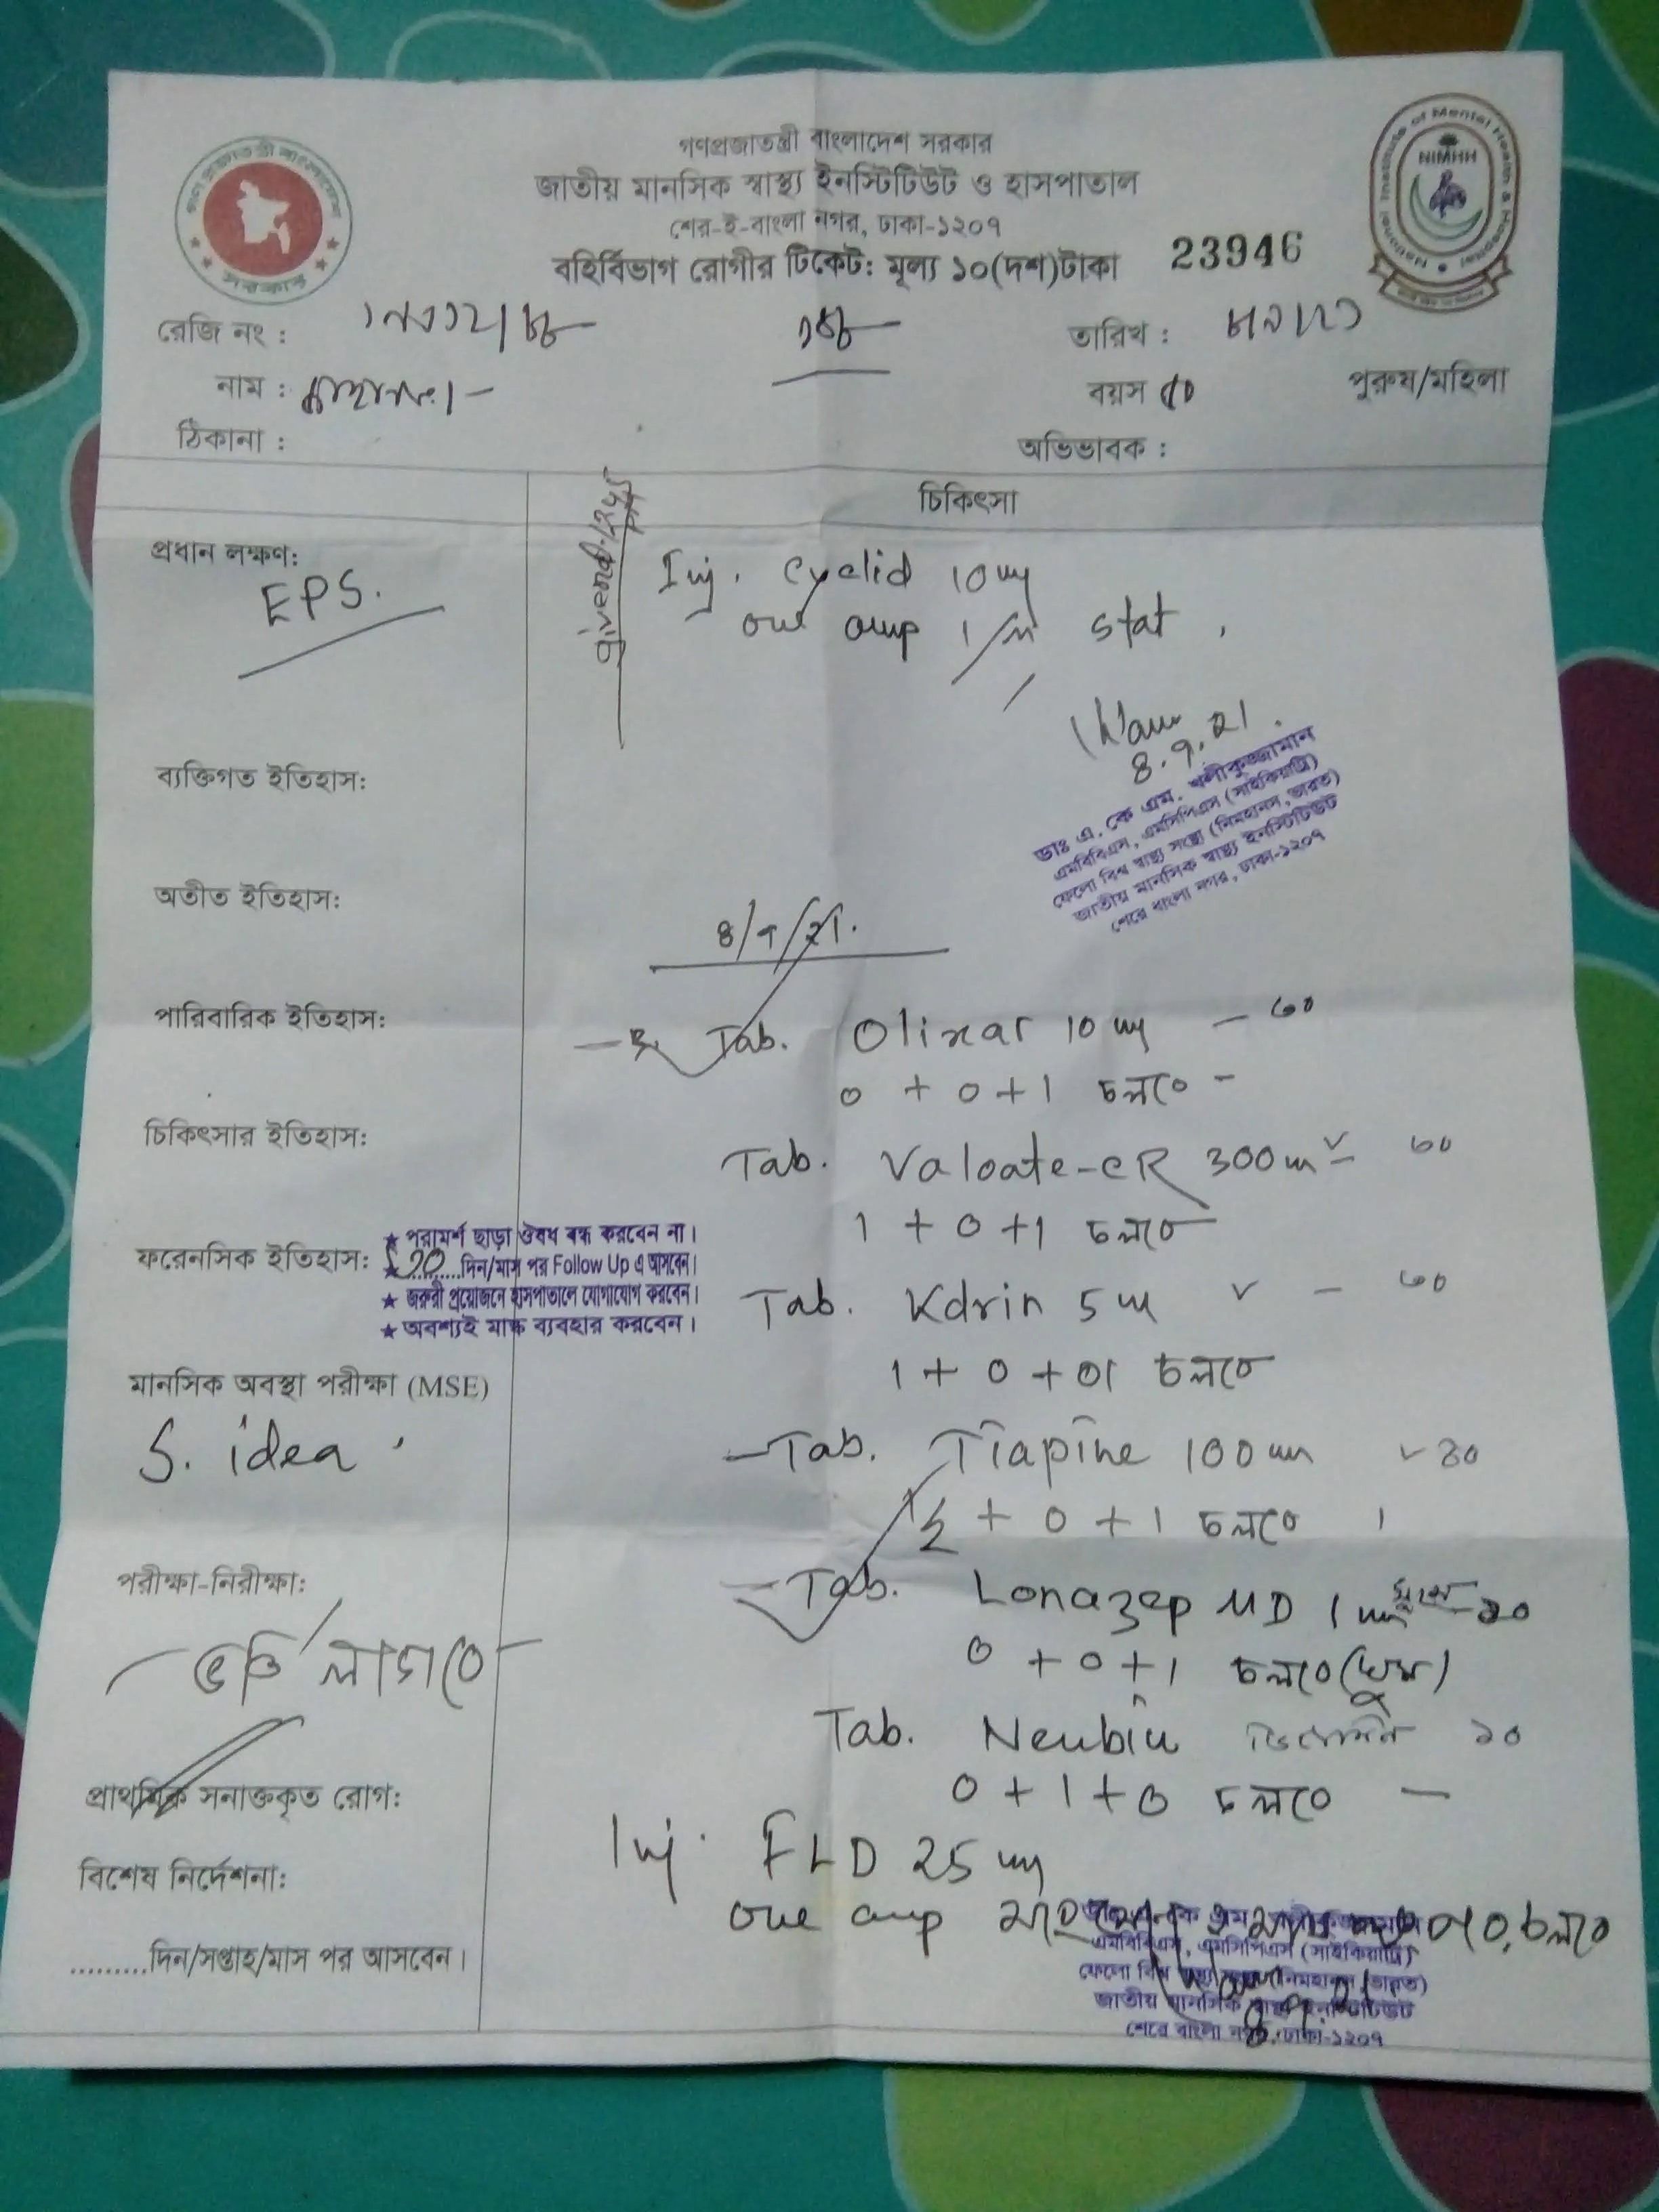 গণপ্রজাতন্ত্রী বাংলাদেশ সরকার
জাতীয় মানসিক স্বাস্থ্য ইনস্টিটিউট ও হাসপাতাল
শের-ই-বাংলা নগর, ঢাকা-১২০৭
বহির্বিভাগ রোগীর টিকেট: মূল্য ১০(দশ)টাকা 23946
National Institute of Mental Health & Hospital
NIMHH
রেজি নং :
তারিখ :
নাম :
বয়স ৫০ পুরুষ/মহিলা
ঠিকানা :
অভিভাবক :
চিকিৎসা
প্রধান লক্ষণ:
EPS.
Inj. cyclid 10 mg
one amp I/M stat.
8.9.21.
ডাঃ এ. কে এম. খলীকুজ্জামান
এমবিবিএস, এমসিপিএস (সাইকিয়াট্রি)
ফেলো বিশ্ব স্বাস্থ্য সংস্থা (নিমহানস, ভারত)
জাতীয় মানসিক স্বাস্থ্য ইনস্টিটিউট
শেরে বাংলা নগর, ঢাকা-১২০৭
ব্যক্তিগত ইতিহাস:
অতীত ইতিহাস:
8/9/21.
পারিবারিক ইতিহাস:
Tab. Olinar 10 mg
0 + 0 + 1 চলবে
চিকিৎসার ইতিহাস:
Tab. Valoate-CR 300 m ৬০
1 + 0 + 1 চলবে
ফরেনসিক ইতিহাস:
★ পরামর্শ ছাড়া ঔষধ বন্ধ করবেন না।
★ ..........দিন/মাস পর Follow Up এ আসবেন।
★ জরুরী প্রয়োজনে হাসপাতালে যোগাযোগ করবেন।
★ অবশ্যই মাস্ক ব্যবহার করবেন।
Tab. Kdrin 5 m ৬০
1 + 0 + 01 চলবে
মানসিক অবস্থা পরীক্ষা (MSE)
S. idea
Tab. Tiapine 100 m
½ + 0 + 1 চলবে
পরীক্ষা-নিরীক্ষা:
Tab. Lonazep MD 1 m
0 + 0 + 1 চলবে (ঘুম)
ভর্তি লাগবে
Tab. Neubin
0 + 1 + 0 চলবে
প্রাথমিক সনাক্তকৃত রোগ:
Inj. FLD 25 mg
one amp
বিশেষ নির্দেশনা:
এমবিবিএস, এমসিপিএস (সাইকিয়াট্রি)
জাতীয় মানসিক স্বাস্থ্য ইনস্টিটিউট
শেরে বাংলা নগর, ঢাকা-১২০৭
.........দিন/সপ্তাহ/মাস পর আসবেন।